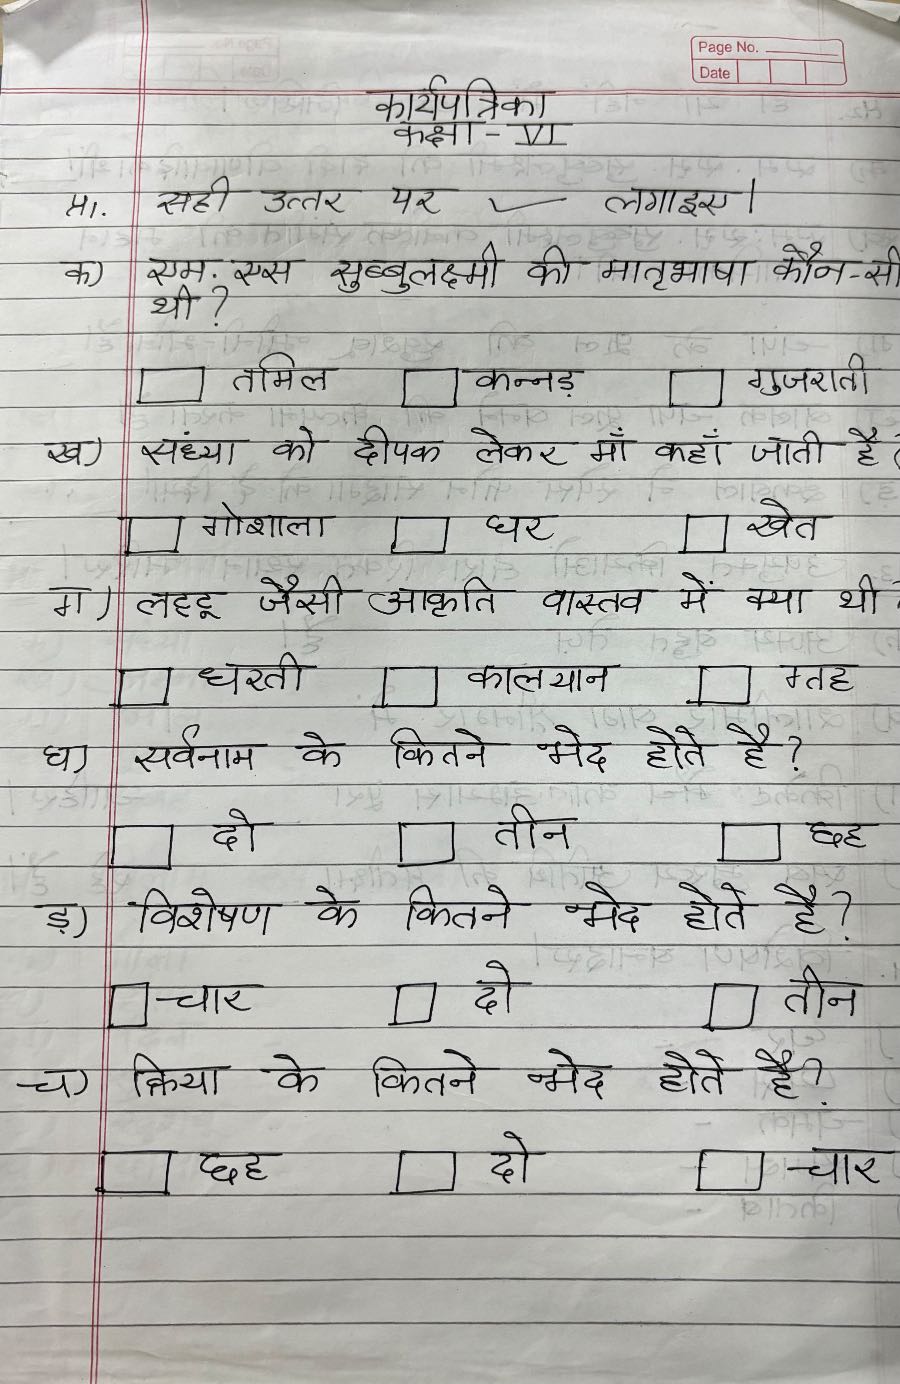 Page No.
Date
कार्यपत्रिका
कक्षा - VI
प्र1. सही उत्तर पर ✓ लगाइए।
क) एम. एस सुब्बुलक्ष्मी की मातृभाषा कौन-सी
थी?
तमिल कन्नड़ गुजराती
ख) संध्या को दीपक लेकर माँ कहाँ जाती है?
गोशाला घर खेत
ग) लट्टू जैसी आकृति वास्तव में क्या थी?
धरती कालयान ग्रह
घ) सर्वनाम के कितने भेद होते है?
दो तीन छह
ड़) विशेषण के कितने भेद होते है?
चार दो तीन
च) क्रिया के कितने भेद होते है?
छह दो चार